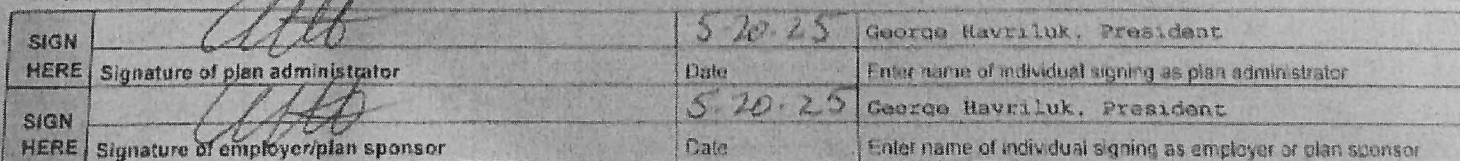 SIGN HERE
5-20-25 George Havriluk, President
Signature of plan administrator Date Enter name of individual signing as plan administrator
SIGN HERE
5-20-25 George Havriluk, President
Signature of employer/plan sponsor Date Enter name of individual signing as employer or plan sponsor